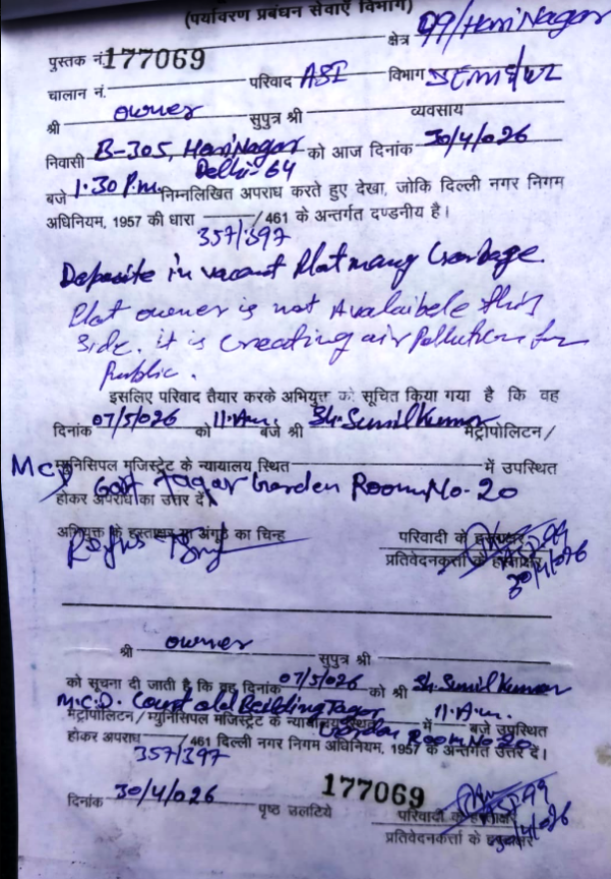 (पर्यावरण प्रबंधन सेवाएँ विभाग)
पुस्तक नं. 177069 क्षेत्र 99/Hari Nagar
चालान नं. परिवाद ASI विभाग DEMS/WZ
श्री owner सुपुत्र श्री व्यवसाय
निवासी B-305, Hari Nagar को आज दिनांक 30/4/026
Delhi-64
बजे 1.30 P.m. निम्नलिखित अपराध करते हुए देखा, जोकि दिल्ली नगर निगम
अधिनियम, 1957 की धारा /461 के अन्तर्गत दण्डनीय है।
357/397
Deposite in vacant Plot many Garbage.
Plot owner is not Avalaibele this
Side. it is creating air Pollution for
Public.
इसलिए परिवाद तैयार करके अभियुक्त को सूचित किया गया है कि वह
दिनांक 07/5/026 को 11.Am. बजे श्री Sh. Sunil Kumar मैट्रोपोलिटन/
MCD म्युनिसिपल मजिस्ट्रेट के न्यायालय स्थित में उपस्थित
होकर अपराध का उत्तर दें। Tagar Garden Room No-20
अभियुक्त के हस्ताक्षर या अंगूठे का चिन्ह परिवादी के हस्ताक्षर
प्रतिवेदनकर्त्ता के हस्ताक्षर
30/4/026
श्री owner सुपुत्र श्री
को सूचना दी जाती है कि वह दिनांक 07/5/026 को श्री Sh. Sunil Kumar
M.C.D. Court old Building Tagor 11.A.m.
मैट्रोपोलिटन / म्युनिसिपल मजिस्ट्रेट के न्यायालय स्थित में बजे उपस्थित
Garden Room No 20
होकर अपराध /461 दिल्ली नगर निगम अधिनियम, 1957 के अन्तर्गत उत्तर दें।
357/397
दिनांक 30/4/026 पृष्ठ उलटिये 177069 परिवादी के हस्ताक्षर
प्रतिवेदनकर्त्ता के हस्ताक्षर